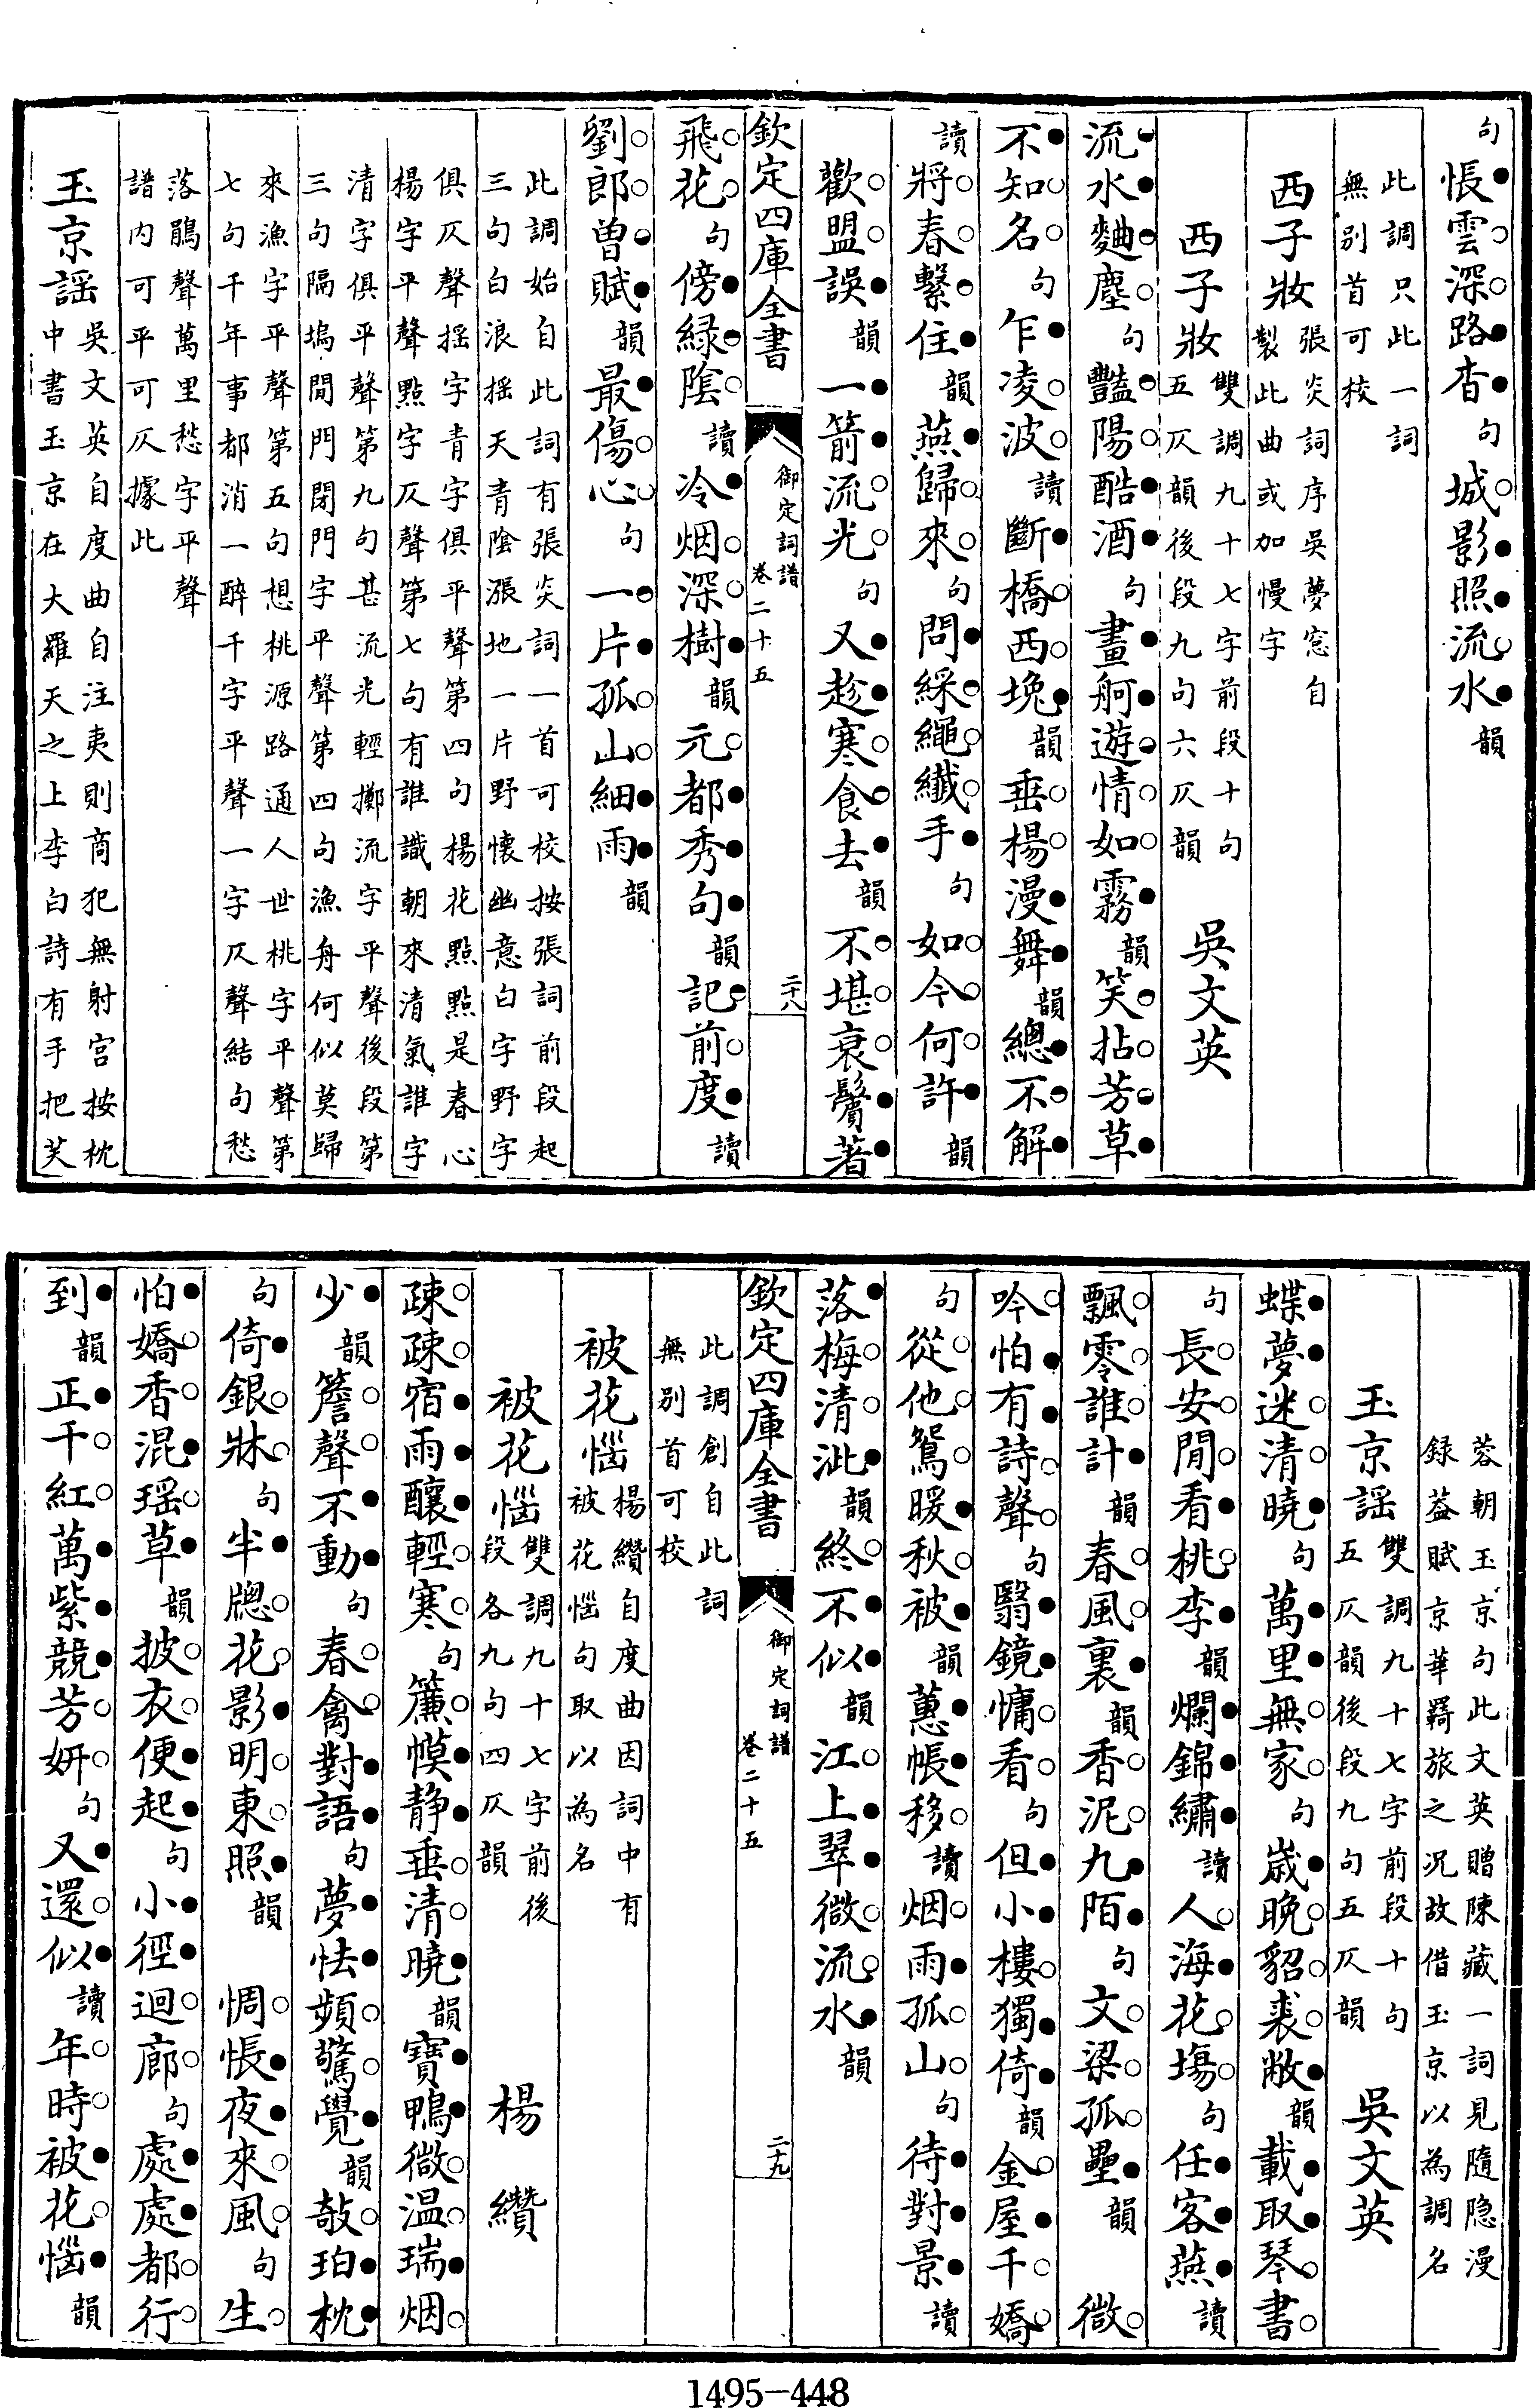 句悵雲深路杳句城影照流水韻
此調只此一詞
無别首可校
西子妝張炎詞序吳夢窓自
製此曲或加慢字
西子妝雙調九十七字前段十句
五仄韻後段九句六仄韻
吳文英
流水麯塵句豔陽酷酒句畫舸遊情如霧韻笑拈芳草
不知名句乍凌波讀斷橋西堍韻垂楊漫舞韻總不解
讀將春繫住韻燕歸來句問綵繩纖手句如今何許韻
歡盟誤韻一箭流光句又趁寒食去韻不堪衰鬢著
欽定四庫全書
御定詞譜
卷二十五
二十八
飛花句傍緑陰讀冷烟深樹韻元都秀句韻記前度讀
劉郎曽賦韻最傷心句一片孤山細雨韻
此調始自此詞有張炎詞一首可校按張詞前段起
三句白浪揺天青陰漲地一片野懷幽意白字野字
俱仄聲揺字青字俱平聲第四句楊花點點是春心
楊字平聲點字仄聲第七句有誰識朝來清氣誰字
清字俱平聲第九句甚流光輕擲流字平聲後段第
三句隔塢閒門閉門字平聲第四句漁舟何似莫歸
來漁字平聲第五句想桃源路通人世桃字平聲第
七句千年事都消一醉千字平聲一字仄聲結句愁
落鵑聲萬里愁字平聲
譜内可平可仄據此
玉京謡吳文英自度曲自注夷則商犯無射宫按枕
中書玉京在大羅天之上李白詩有手把芙
蓉朝玉京句此文英贈陳藏一詞見隨隐漫
録葢賦京華羇旅之况故借玉京以為調名
玉京謡雙調九十七字前段十句
五仄韻後段九句五仄韻
吳文英
蝶夢迷清曉句萬里無家句歲晚貂裘敝韻載取琴書
句長安閒看桃李韻爛錦繡讀人海花塲句任客燕讀
飄零誰計韻春風裏韻香泥九陌句文梁孤壘韻微
吟怕有詩聲句翳鏡慵看句但小樓獨倚韻金屋千嬌
句從他鴛暖秋被韻蕙帳移讀烟雨孤山句待對景讀
落梅清泚韻終不似韻江上翠微流水韻
欽定四庫全書
御定詞譜
卷二十五
二十九
此調創自此詞
無别首可校
被花惱楊纘自度曲因詞中有
被花惱句取以為名
被花惱雙調九十七字前後
段各九句四仄韻
楊纘
疎疎宿雨釀輕寒句簾幙静垂清曉韻寶鴨微温瑞烟
少韻簷聲不動句春禽對語句夢怯頻驚覺韻敧珀枕
句倚銀牀句半牕花影明東照韻惆悵夜來風句生
怕嬌香混瑶草韻披衣便起句小徑迴廊句處處都行
到韻正千紅萬紫競芳妍句又還似讀年時被花惱韻
1495-448